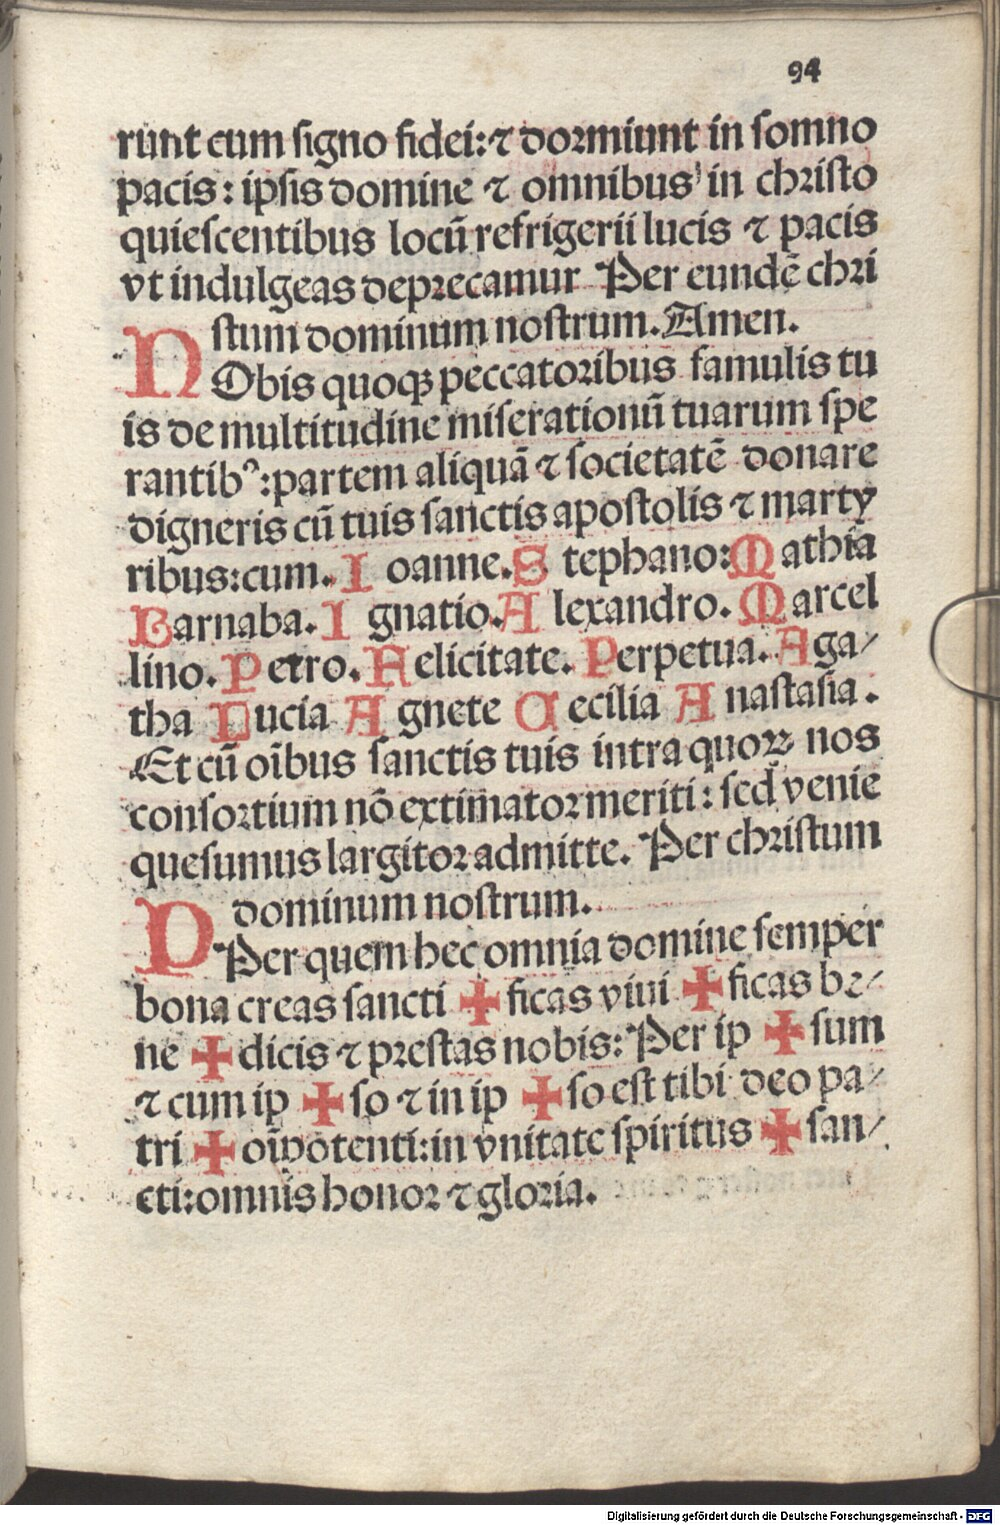 94
runt cum signo fidei: ⁊ dormiunt in somno
pacis: ipsis domine ⁊ omnibus in christo
quiescentibus locū refrigerii lucis ⁊ pacis
vt indulgeas deprecamur Per eundē chri
stum dominum nostrum. Amen.
NObis quoqꝫ peccatoribus famulis tu
is de multitudine miserationū tuarum spe
rantibꝰ: partem aliquā ⁊ societatē donare
digneris cū tuis sanctis apostolis ⁊ marty
ribus: cum. Ioanne. Stephano: Mathia
Barnaba. Ignatio. Alexandro. Marcel
lino. Petro. Felicitate. Perpetua. Aga/
tha Lucia Agnete Cecilia Anastasia.
Et cū oībus sanctis tuis intra quoꝝ nos
consortium nō extimator meriti: sed venie
quesumus largitor admitte. Per christum
dominum nostrum.
P Per quem hec omnia domine semper
bona creas sancti ✠ ficas viui ✠ ficas be/
ne ✠ dicis ⁊ prestas nobis: Per ip ✠ sum
⁊ cum ip ✠ so ⁊ in ip ✠ so est tibi deo pa/
tri ✠ oīpotenti: in vnitate spiritus ✠ san/
cti: omnis honor ⁊ gloria.
Digitalisierung gefördert durch die Deutsche Forschungsgemeinschaft - DFG